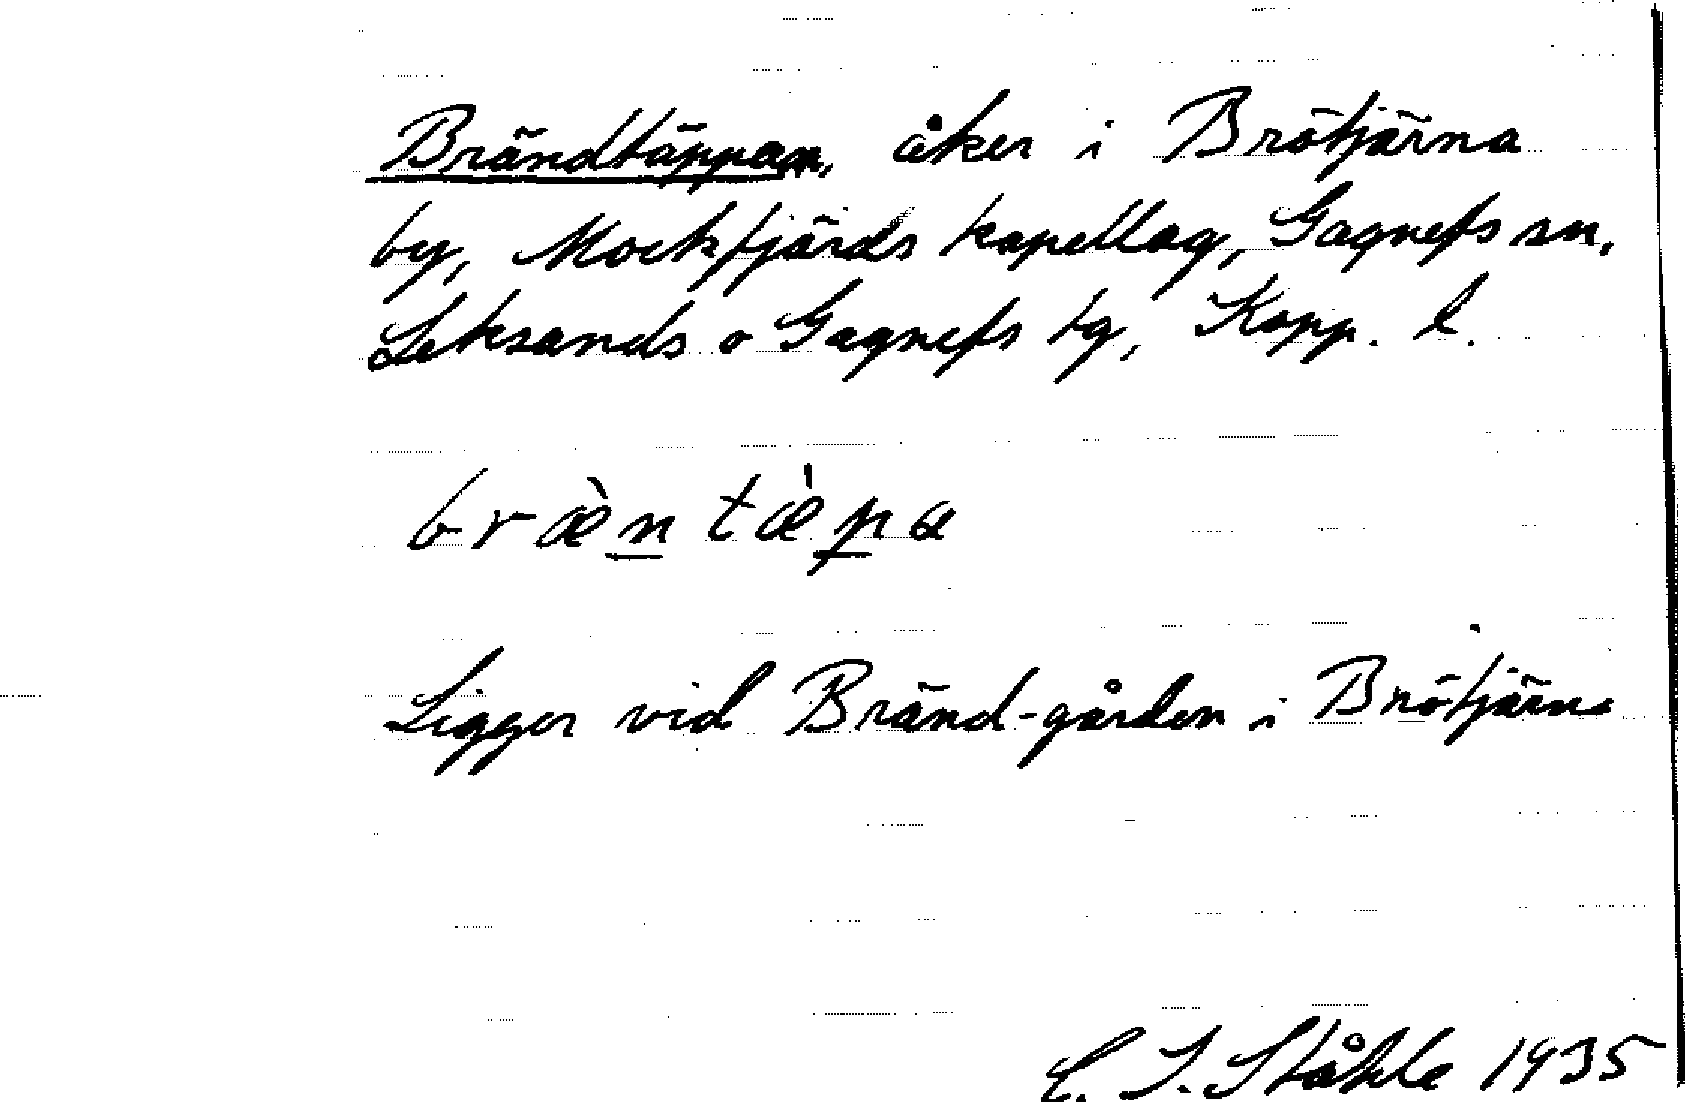 Brändtäppan, åker i Brötjärna
by, Mockfjärds kapellag, Gagnefs sn,
Leksands o Gagnefs tg, Kopp. l.
bræ̀n tæ̀pa
Ligger vid Bränd-gården i Brötjärna
C. I. Ståhle 1935